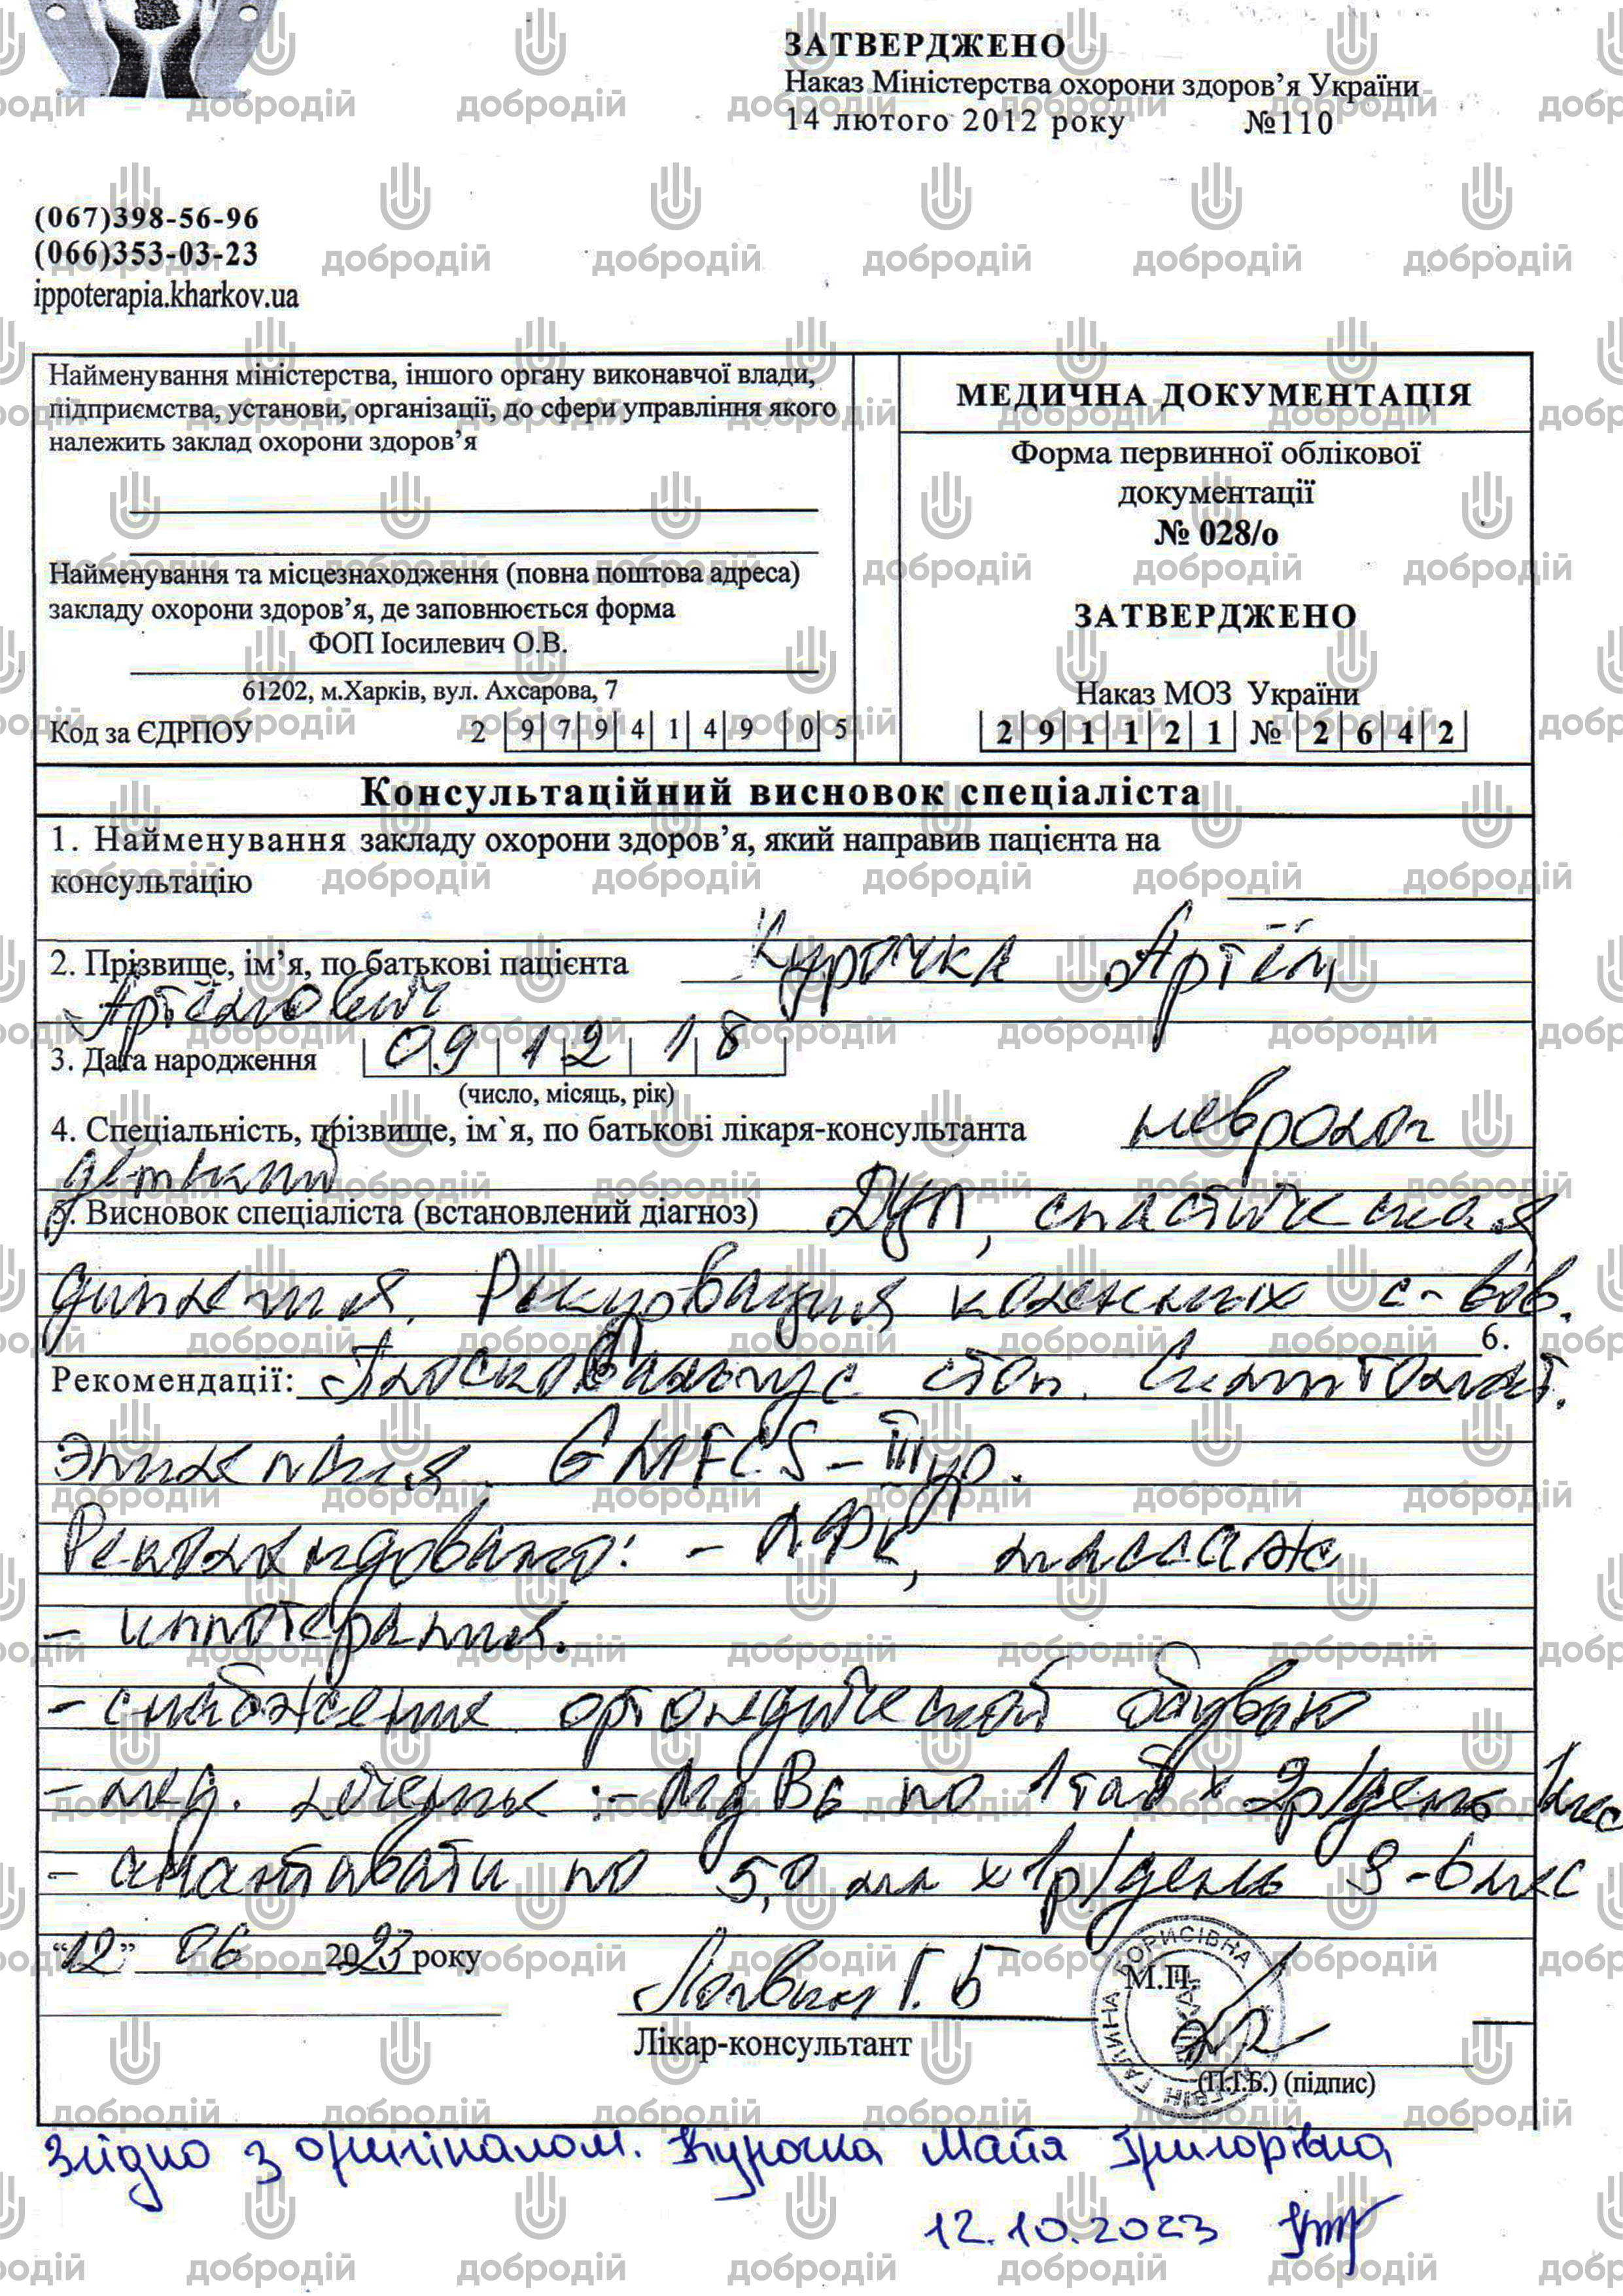 ЗАТВЕРДЖЕНО
Наказ Міністерства охорони здоров’я України
14 лютого 2012 року №110
(067)398-56-96
(066)353-03-23
ippoterapia.kharkov.ua
Найменування міністерства, іншого органу виконавчої влади,
підприємства, установи, організації, до сфери управління якого
належить заклад охорони здоров’я
Найменування та місцезнаходження (повна поштова адреса)
закладу охорони здоров’я, де заповнюється форма
ФОП Іосилевич О.В.
61202, м.Харків, вул. Ахсарова, 7
Код за ЄДРПОУ 2 9 7 9 4 1 4 9 0 5
МЕДИЧНА ДОКУМЕНТАЦІЯ
Форма первинної облікової
документації
№ 028/о
ЗАТВЕРДЖЕНО
Наказ МОЗ України
2 9 1 1 2 1 № 2 6 4 2
Консультаційний висновок спеціаліста
1. Найменування закладу охорони здоров’я, який направив пацієнта на
консультацію
2. Прізвище, ім’я, по батькові пацієнта Курочка Артём
Артёмович
3. Дата народження 09 12 18
(число, місяць, рік)
4. Спеціальність, прізвище, ім`я, по батькові лікаря-консультанта невролог
детский
5. Висновок спеціаліста (встановлений діагноз) ДЦП, спастическая
диплегия. Рекурвация коленных с-вов.
6.
Рекомендації: Плосковальгус стоп. Симптомат.
эпилепсия. GMFCS-III ур.
Рекомендовано: - ЛФК, массаж
- иппотерапия.
- снабжение ортопедической обувью
- мед. лечение :- Mg B6 по 1 таб х 2р/день 1мес
- по 5,0 мл х 1р/день 3-6мес
“12” 06 2023 року
Логвин Г.Б М.П.
Лікар-консультант
(П.І.Б.) (підпис)
ГАЛИНА БОРИСІВНА
Згідно з оригіналом. Курочка Майя Григорівна
12.10.2023
добродій